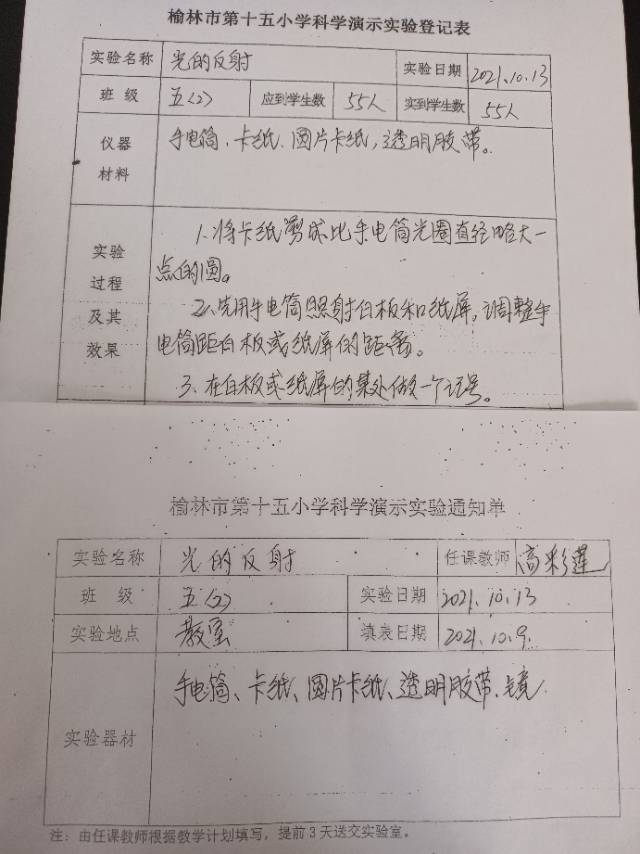 榆林市第十五小学科学演示实验登记表
实验名称 光的反射 实验日期 2021.10.13
班 级 五(2) 应到学生数 55人 实到学生数 55人
仪器
材料
手电筒、卡纸、圆片卡纸,透明胶带。
实验
过程
及其
效果
1、将卡纸剪成比手电筒光圈直径略大一
点的圆。
2、先用手电筒照射白板和纸屏,调整手
电筒距白板或纸屏的距离。
3、在白板或纸屏的某处做一个记号。
榆林市第十五小学科学演示实验通知单
实验名称 光的反射 任课教师 高彩莲
班 级 五(2) 实验日期 2021.10.13
实验地点 教室 填表日期 2021.10.9.
实验器材 手电筒、卡纸、圆片卡纸、透明胶带、镜
注:由任课教师根据教学计划填写,提前3天送交实验室。